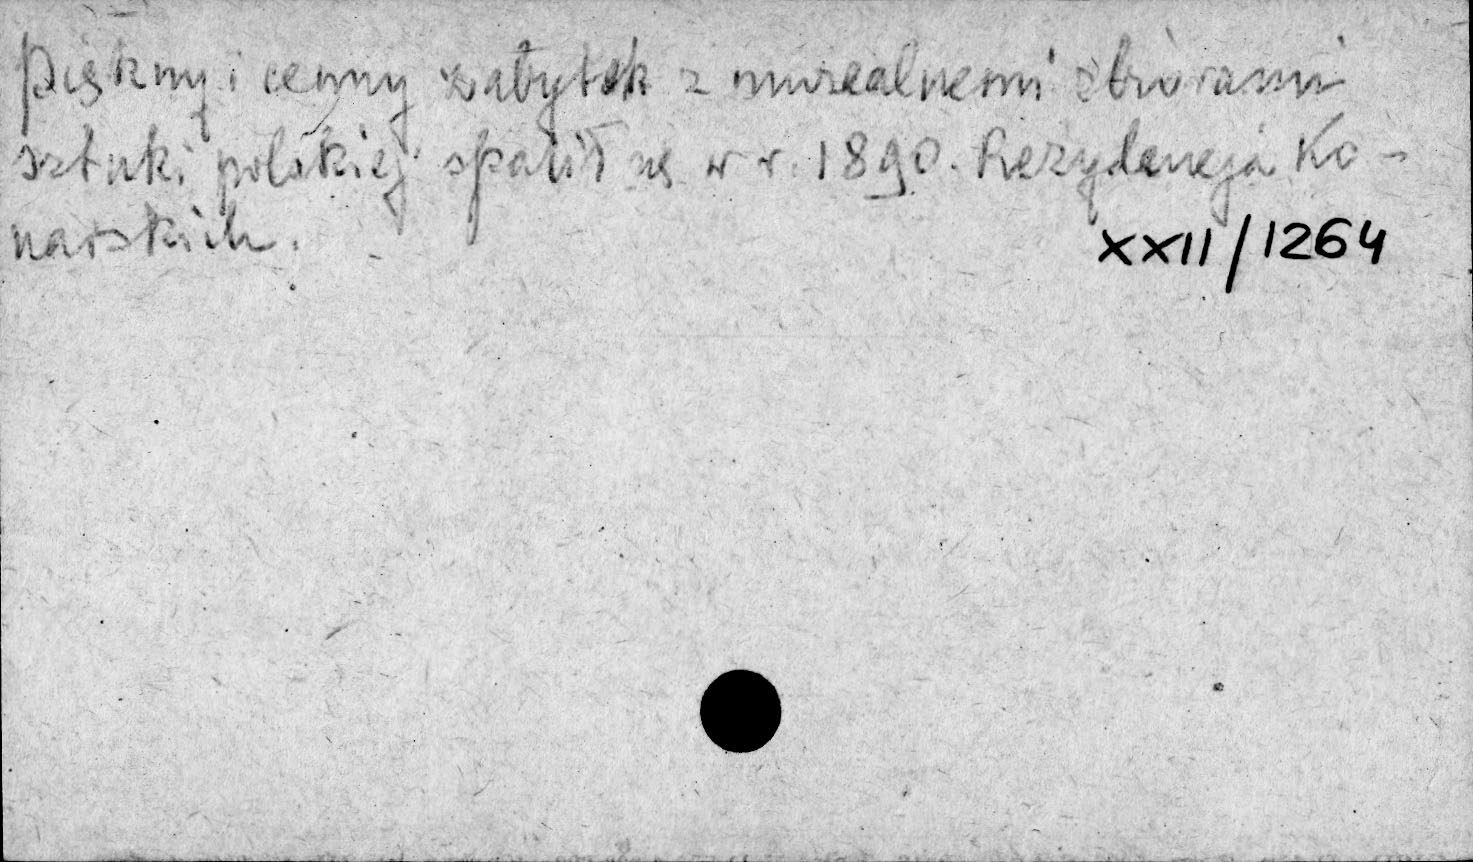 Piękny i cenny zabytek z muzealnemi zbiorami
sztuki polskiej spalił się w r. 1890. Rezydencja Ko-
narskich.
XXII/1264